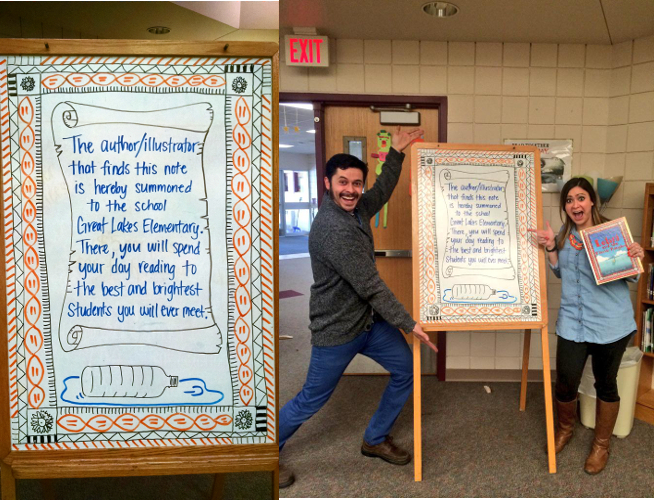 The author/illustrator
that finds this note
is hereby summoned
to the school
Great Lakes Elementary.
There, you will spend
your day reading to
the best and brightest
Students you will ever meet.
EXIT
The author/illustrator
that finds this note
is hereby summoned
to the school
Great Lakes Elementary.
There, you will spend
your day reading to
the best and brightest
Students you will ever meet.